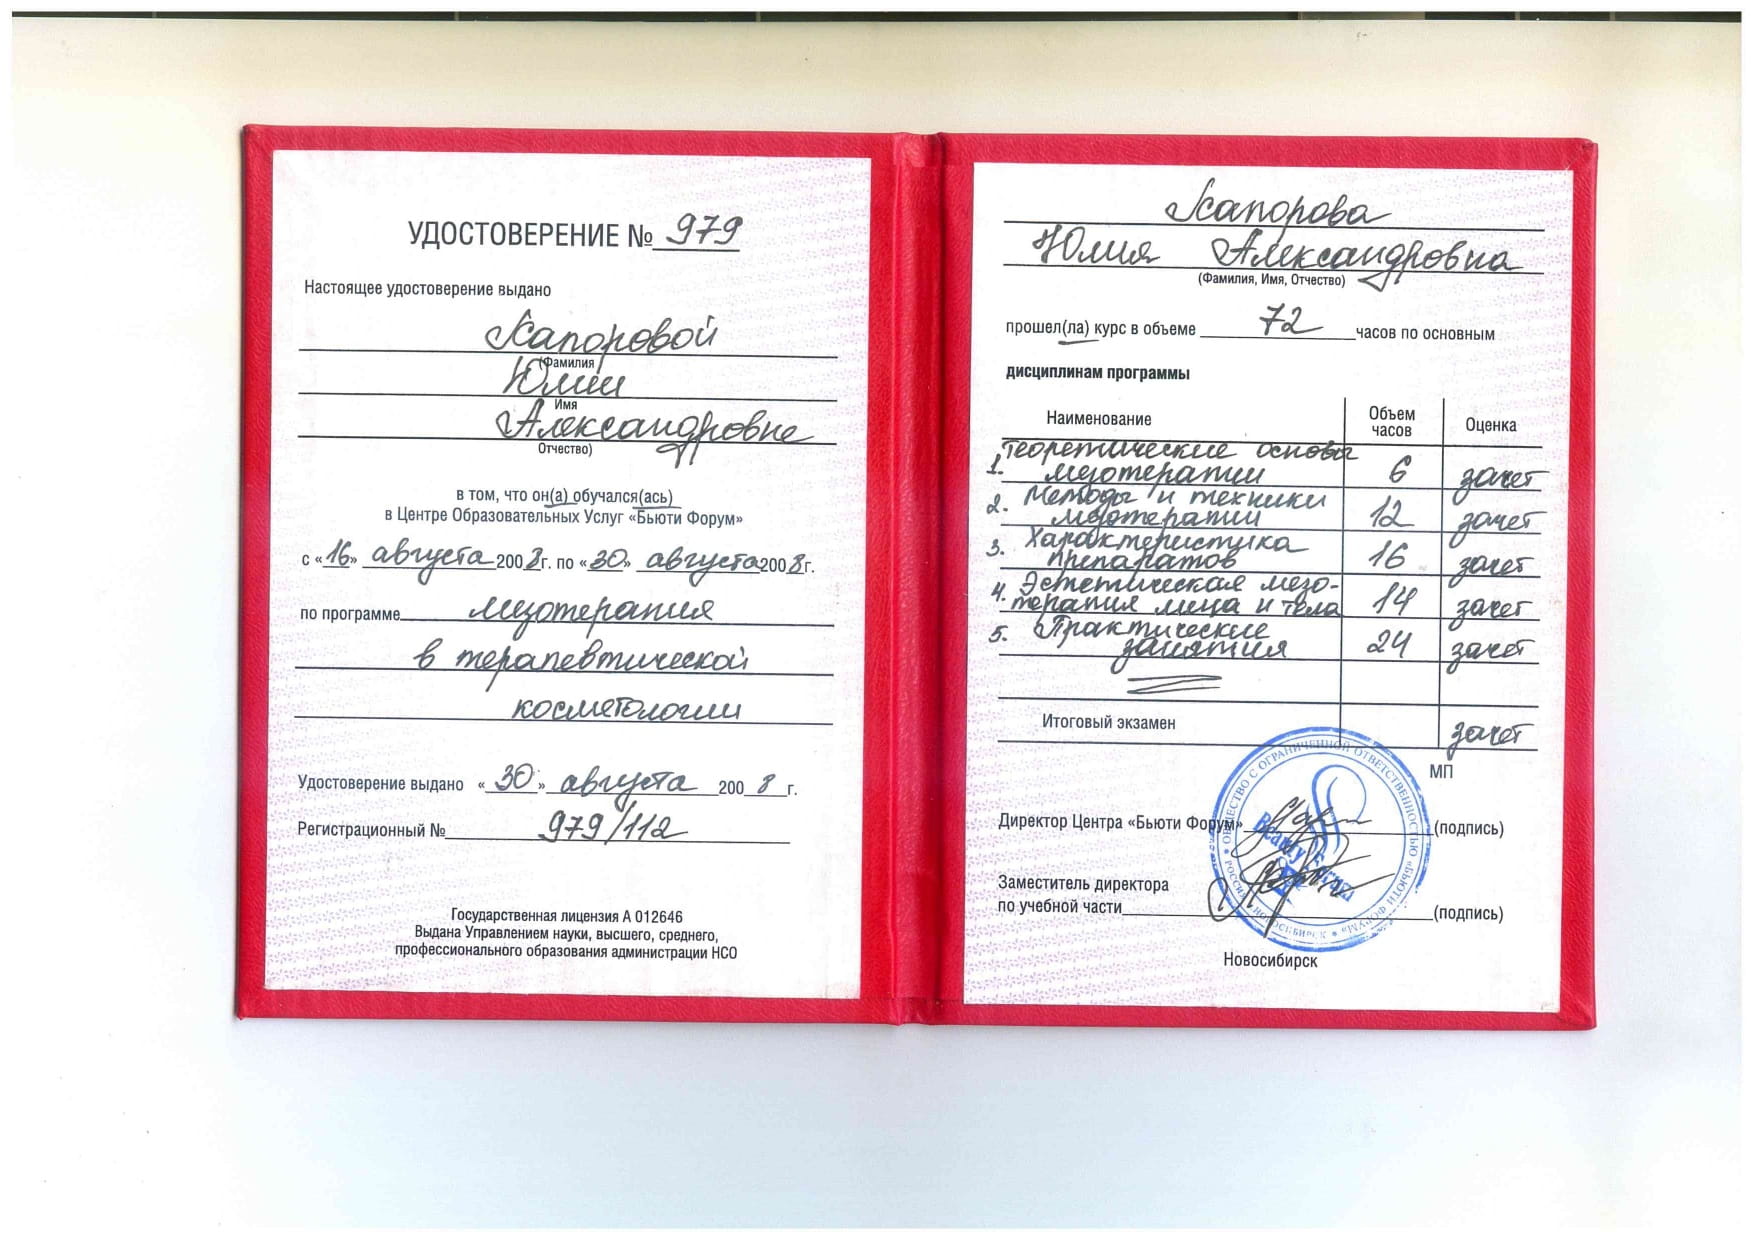 УДОСТОВЕРЕНИЕ № 979
Настоящее удостоверение выдано
Капоровой
(Фамилия
Юлии
Имя
Александровне
Отчество)
в том, что он(а) обучался(ась)
в Центре Образовательных Услуг «Бьюти Форум»
с «16» августа 2008г. по «30» августа 2008г.
по программе мезотерапия
в терапевтической
косметологии
Удостоверение выдано «30» августа 2008г.
Регистрационный № 979/112
Государственная лицензия А 012646
Выдана Управлением науки, высшего, среднего,
профессионального образования администрации НСО
Капорова
Юлия Александровна
(Фамилия, Имя, Отчество)
прошел(ла) курс в объеме 72 часов по основным
дисциплинам программы
Наименование Объем часов Оценка
1. Теоретические основы
мезотерапии 6 зачет
2. Методы и техники
мезотерапии 12 зачет
3. Характеристика
препаратов 16 зачет
4. Эстетическая мезо-
терапия лица и тела 14 зачет
5. Практические
занятия 24 зачет
Итоговый экзамен зачет
МП
Директор Центра «Бьюти Форум» (подпись)
Заместитель директора
по учебной части (подпись)
Новосибирск
ОБЩЕСТВО С ОГРАНИЧЕННОЙ ОТВЕТСТВЕННОСТЬЮ «БЬЮТИ ФОРУМ» РОССИЯ НОВОСИБИРСК
Beauty Forum